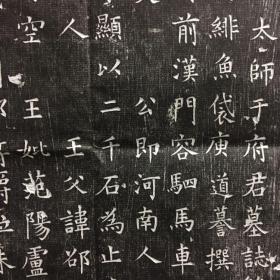 太師于府君墓誌
緋魚袋庾道撰
前漢門容駟馬車
公即河南人
顯以二千石為止
人 王父諱邵
空 王妣范陽盧